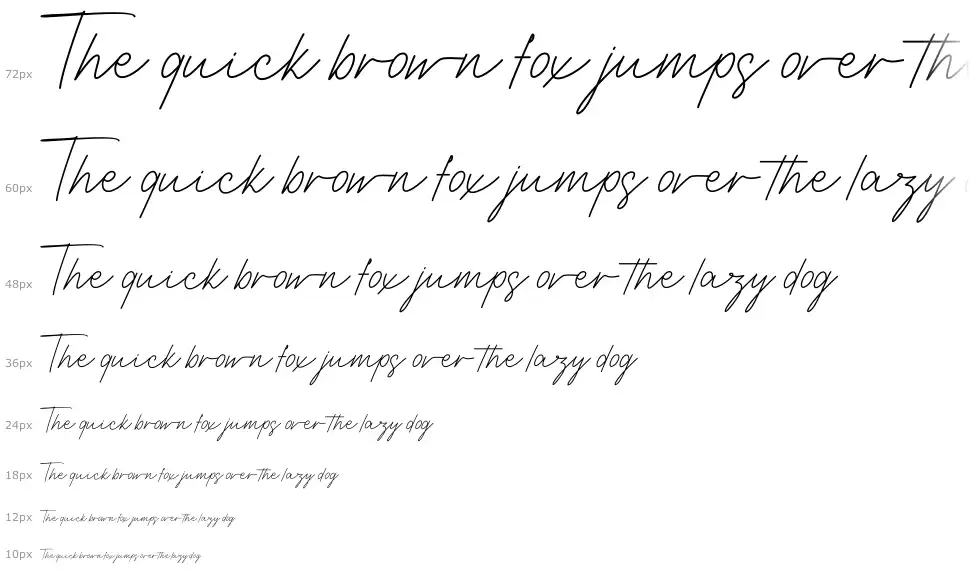 72px The quick brown fox jumps over th
60px The quick brown fox jumps over the lazy
48px The quick brown fox jumps over the lazy dog
36px The quick brown fox jumps over the lazy dog
24px The quick brown fox jumps over the lazy dog
18px The quick brown fox jumps over the lazy dog
12px The quick brown fox jumps over the lazy dog
10px The quick brown fox jumps over the lazy dog